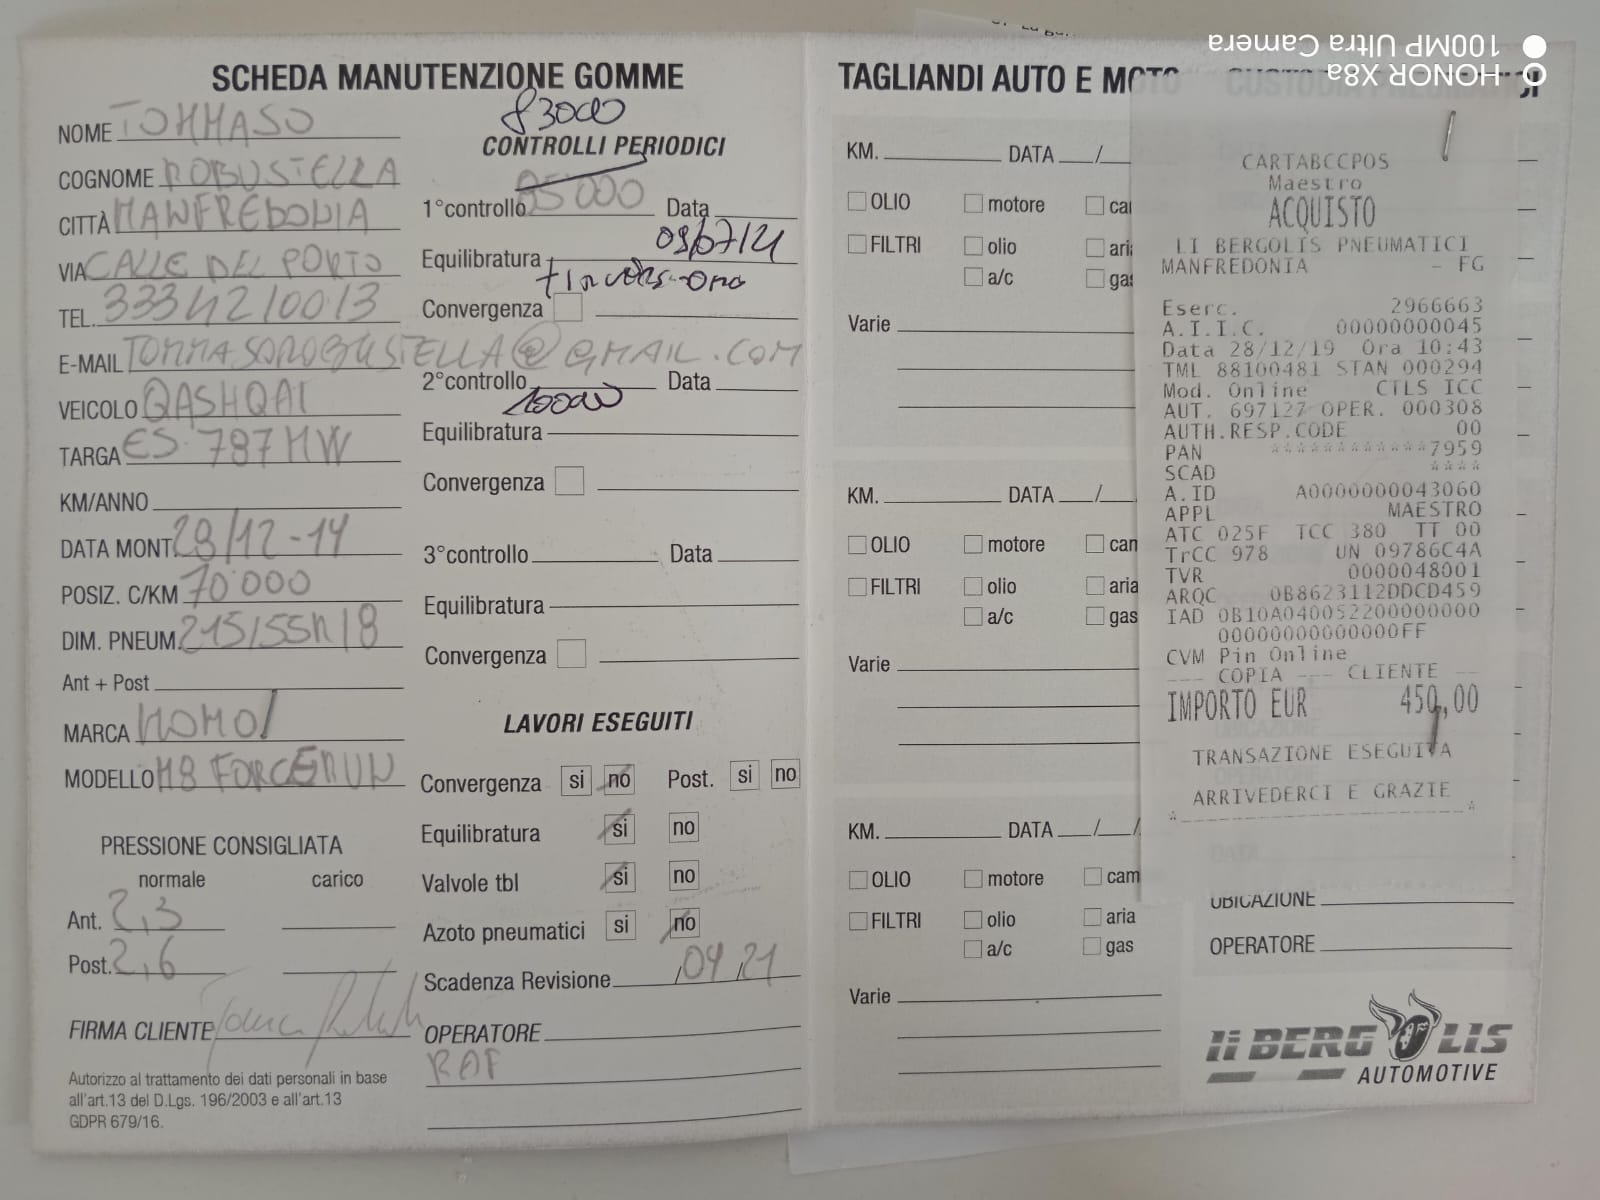 SCHEDA MANUTENZIONE GOMME
NOME TOMMASO
COGNOME ROBUSTELLA
CITTÀ MANFREDONIA
VIA CALLE DEL PORTO
TEL. 3334210013
E-MAIL TOMMASOROBUSTELLA@GMAIL.COM
VEICOLO QASHQAI
TARGA ES 787MW
KM/ANNO
DATA MONT. 28/12-19
POSIZ. C/KM 70'000
DIM. PNEUM. 215/55R18
Ant + Post
MARCA MOMO
MODELLO M8 FORCERUN
PRESSIONE CONSIGLIATA
normale carico
Ant. 2,3
Post. 2,6
FIRMA CLIENTE
Autorizzo al trattamento dei dati personali in base
all'art.13 del D.Lgs. 196/2003 e all'art.13
GDPR 679/16.
83000
CONTROLLI PERIODICI
1°controllo 85'000 Data
Equilibratura 09/07/21
Convergenza
2°controllo Data
10000
Equilibratura
Convergenza
3°controllo Data
Equilibratura
Convergenza
LAVORI ESEGUITI
Convergenza si no Post. si no
Equilibratura si no
Valvole tbl si no
Azoto pneumatici si no
Scadenza Revisione /04/21
OPERATORE
RAF
TAGLIANDI AUTO E MOTO
KM. DATA /
OLIO motore
FILTRI olio
a/c gas
Varie
KM. DATA /
OLIO motore
FILTRI olio aria
a/c gas
Varie
KM. DATA / /
OLIO motore cam
FILTRI olio aria
a/c gas
Varie
CARTABCCPOS
Maestro
ACQUISTO
LI BERGOLIS PNEUMATICI
MANFREDONIA - FG
Eserc. 2966663
A.I.I.C. 00000000045
Data 28/12/19 Ora 10:43
TML 88100481 STAN 000294
Mod. Online CTLS ICC
AUT. 697127 OPER. 000308
AUTH.RESP.CODE 00
PAN ************7959
SCAD ****
A.ID A0000000043060
APPL MAESTRO
ATC 025F TCC 380 TT 00
TrCC 978 UN 09786C4A
TVR 0000048001
ARQC 0B8623112DDCD459
IAD 0B10A040052200000000
00000000000000FF
CVM Pin Online
--- COPIA --- CLIENTE --
IMPORTO EUR 450,00
TRANSAZIONE ESEGUITA
ARRIVEDERCI E GRAZIE
UBICAZIONE
OPERATORE
li BERGOLIS
AUTOMOTIVE
HONOR X8a
100MP Ultra Camera